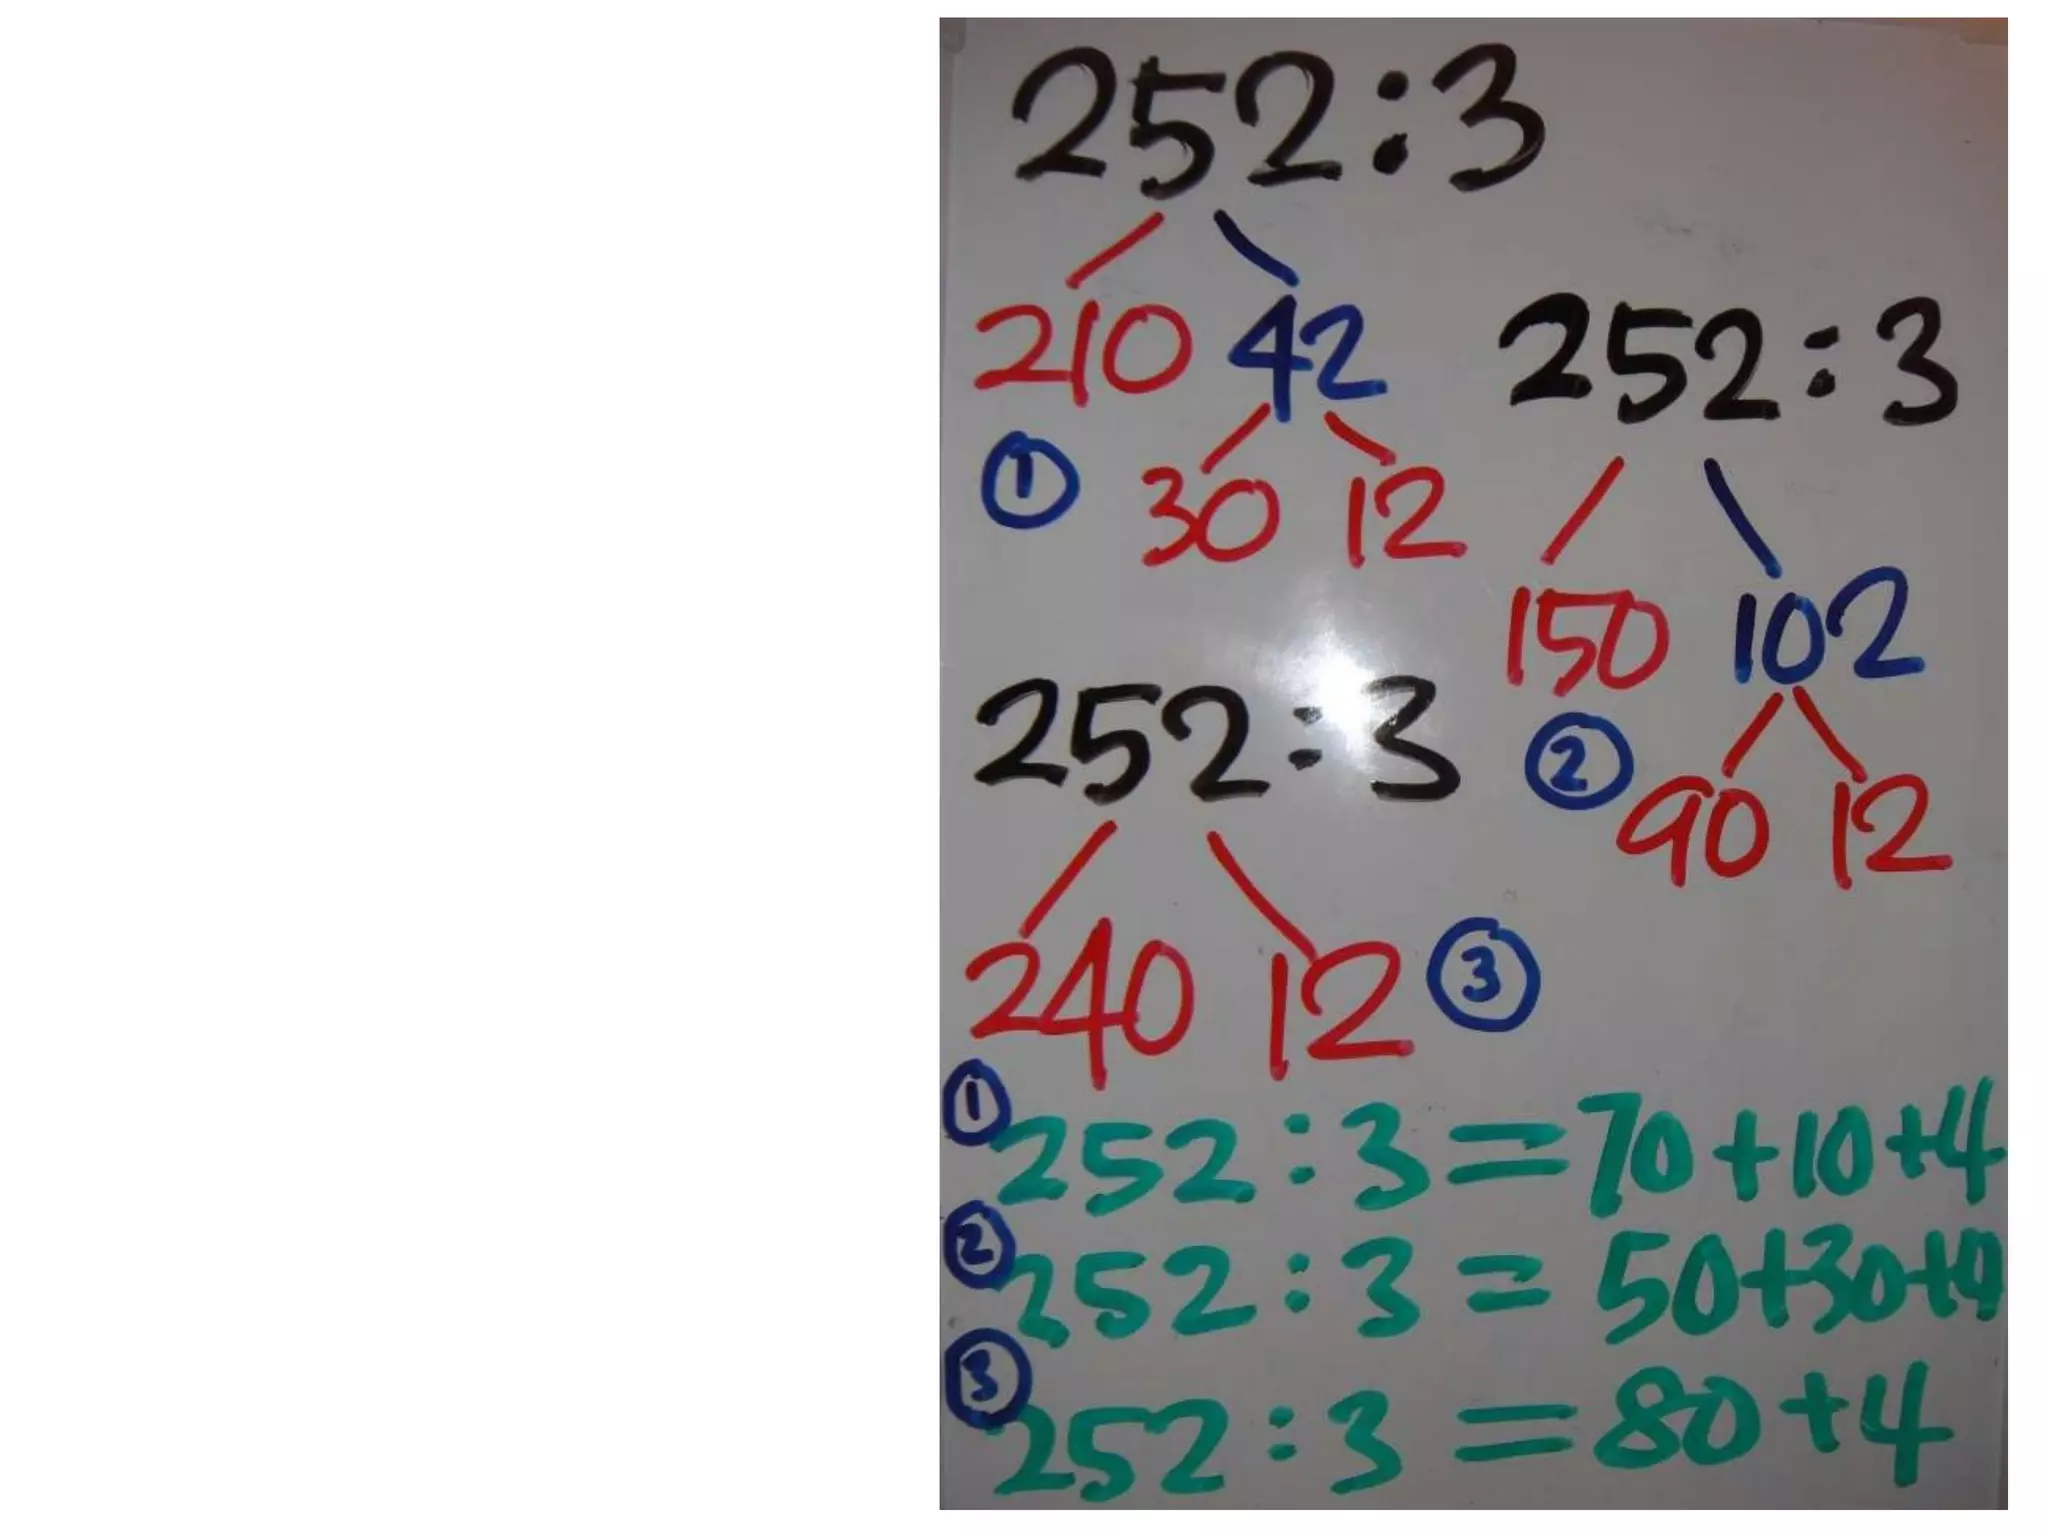 252:3
210 42
① 30 12
252:3
150 102
② 90 12
252:3
240 12 ③
① 252:3=70+10+4
② 252:3=50+30+4
③ 252:3=80+4